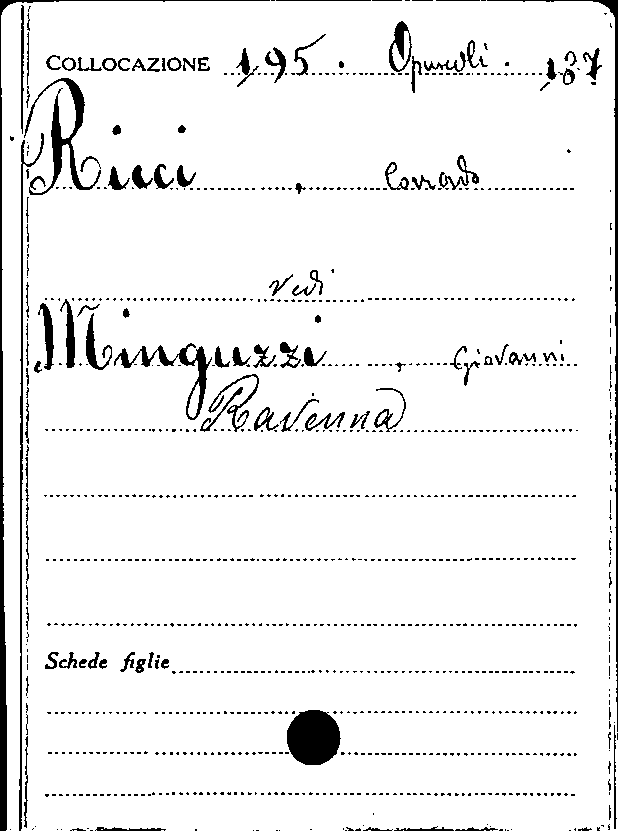 COLLOCAZIONE 195. Opuscoli. 137
Ricci, Corrado
Vedi
Minguzzi, Giovanni
Ravenna
Schede figlie